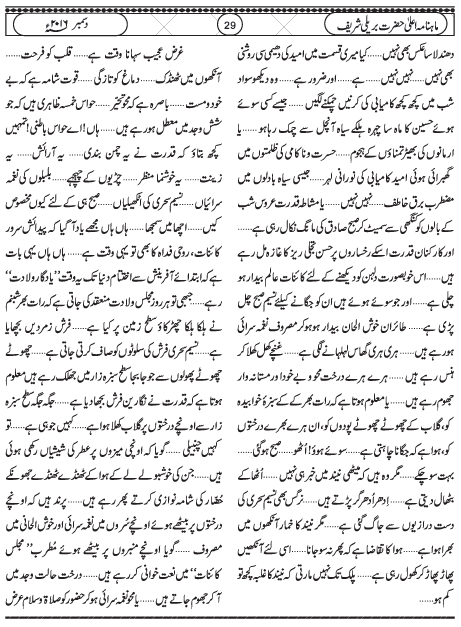 ماہنامہ اعلیٰ حضرت بریلی شریف
29
دسمبر ۲۰۱۶ء
دھندلا سا عکس بھی نہیں......کیا میری قسمت میں امید کی دھیمی سی روشنی
بھی نہیں......نہیں نہیں......ہے......اور ضرور ہے......وہ دیکھو سواد
شب میں کچھ کچھ کامیابی کی کرنیں چمکنے لگیں......جیسے کسی سوئے
ہوئے حسین کا ماہ سا چہرہ ہلکے سیاہ آنچل سے چمک رہا ہو......یا
ارمانوں کی بھیڑ تمناؤں کے ہجوم......حسرت و ناکامی کی ظلمتوں میں
گھبرائی ہوئی امید کامیابی کی نورانی لہر......جیسی سیاہ بادلوں میں
مضطرب برق خاطف......نہیں نہیں......یا مشاطۂ قدرت عروس شب
کے بالوں کو کنگھی سے سمیٹ کر صبح صادق کی مانگ نکال رہی ہے......
اور کارکنان قدرت اسکے رخساروں پر حسن تجلی ریز کا غازہ مل رہے
ہیں......اس خوبصورت دلہن کو دیکھنے کے لئے کائنات عالم بیدار ہو
چلی ہے......اور جو سوئے ہوئے ہیں ان کو جگانے کیلئے نسیم صبح چل
پڑی ہے......طائران خوش الحان بیدار ہو ہو کر مصروف نغمہ سرائی
ہو رہے ہیں......ہری ہری گھاس لہلہانے لگی ہے......غنچے کھل کھلا کر
ہنس رہے ہیں......ہرے ہرے درخت محو و بے خود اور مستانہ وار
جھوم رہے ہیں......یا معلوم ہوتا ہے کہ رات بھر کے سبزۂ خوابیدہ
کو، گلاب کے چھوٹے چھوٹے پودوں کو، ان ہرے بھرے درختوں
کو، ہوا ہے کہ جگانا چاہتی ہے......سوئے ہوؤ! اُٹھو......صبح ہو گئی......
بہت سو چکے......مگر وہ ہیں کہ میٹھی نیند میں خبر ہی نہیں......اُٹھا کے
بٹھال دیتی ہے......اِدھر اُدھر گر پڑتے ہیں......نرگس بھی نسیم سحری کی
دست درازیوں سے جاگ گئی ہے......مگر نیند کا خمار آنکھوں میں
بھرا ہوا ہے......ہوا کا تقاضا ہے کہ پھر نہ سو جانا......اسی لئے آنکھیں
پھاڑ پھاڑ کر کھول رہی ہے......پلک تک نہیں مارتی کہ نیند کا غلبہ کچھ تو
کم ہو......
غرض عجیب سہانا وقت ہے......قلب کو فرحت......
آنکھوں میں ٹھنڈک......دماغ کو تازگی......قوت شامہ ہے کہ بے
خود و مست......باصرہ ہے کہ محو تحیّر......حواس خمسہ ظاہری ہیں کہ جو
شش و جد میں معطل ہو رہے ہیں......ہاں! اے حواس باطنی! تمہیں
کچھ بتاؤ کہ قدرت نے یہ چمن بندی......یہ آرائش......یہ
زینت......یہ خوشنما منظر......چڑیوں کے چہچہے......بلبلوں کی نغمہ
سرائیاں......نسیم سحری کی اٹکھیلیاں......صبح ہی کے لئے کیوں مخصوص
کیں......اچھا میں سمجھا......ہاں ہاں مجھے یاد آ گیا کہ پیدائش سرور
کائنات، روحی فداہ کا بھی تو یہی وقت ہے......ہاں ہاں یہی بات
ہے کہ ابتدائے آفرینش سے اختتام دنیا تک یہ وقت "یادگار ولادت"
رہے......جبھی تو ہر روز مجلس ولادت منعقد کی جاتی ہے کہ رات بھر شبنم
نے ہلکا ہلکا چھڑکاؤ سطح زمین پر کیا ہے......فرش زمردیں بچھایا
ہے......نسیم سحری فرش کی سلوٹوں کو صاف کرتی جاتی ہے......چھوٹے
چھوٹے پھولوں سے جو جا بجا سطح سبزہ زار میں جھلک رہے ہیں معلوم
ہوتا ہے کہ قدرت نے نگارین فرش بچھا دیا ہے......جگہ جگہ سطح سبزہ
زار سے اونچے درختوں پر گلاب کھلا ہوا ہے......کہیں جوہی ہے......تو
کہیں چنبیلی......گویا کہ اونچی میزوں پر عطر کی شیشیاں رکھی ہوئی
ہیں......جن کی خوشبو لے لے کے ہوا کے ٹھنڈے ٹھنڈے جھونکے
حُضّار کی شامہ نوازی کرتے پھر رہے ہیں......پرند ہیں کہ اونچے
درختوں پر بیٹھے ہوئے اونچے سُروں میں نغمہ سرائی اور خوش الحانی میں
مصروف......گویا اونچے منبروں پر بیٹھے ہوئے مُطرب "مجلس
کائنات" میں نعت خوانی کر رہے ہیں......درخت حالت وجد میں
آ کر جھوم جاتے ہیں......یا محو نغمہ سرائی ہو کر حضور کو صلاۃ و سلام عرض